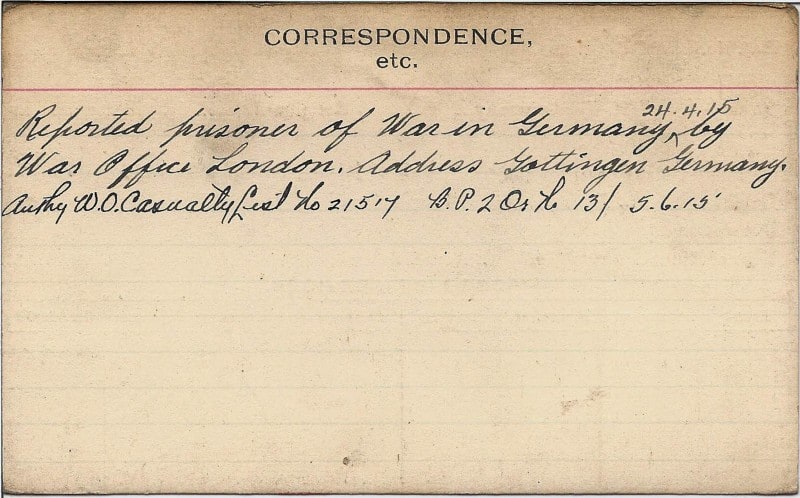 CORRESPONDENCE,
etc.
24.4.15
Reported prisoner of War in Germany, by
War Office London. Address Gottingen Germany.
Authy W.O. Casualty List No 21517 B.P. 2 Or No 13/ 5.6.15